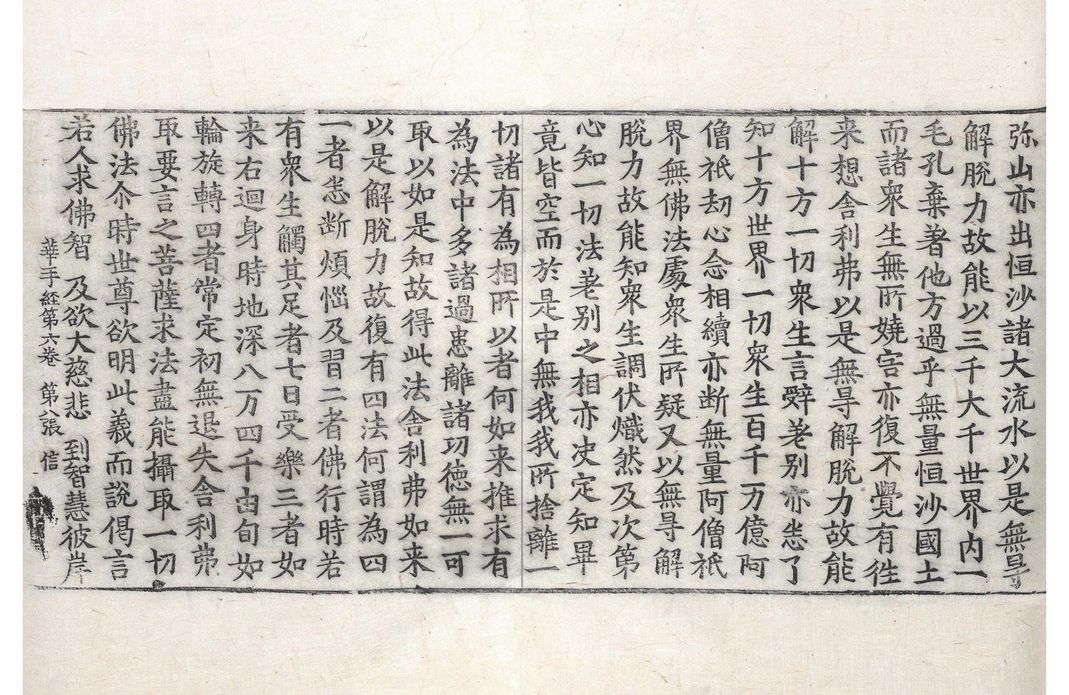 弥山亦出恒沙諸大流水以是無㝵
解脫力故能以三千大千世界内一
毛孔棄著他方過乎無量恒沙國土
而諸衆生無所嬈害亦復不覺有徃
来想舍利弗以是無㝵解脫力故能
解十方一切衆生言辤差别亦悉了
知十方世界一切衆生百千万億阿
僧祇刧心念相續亦断無量阿僧祇
界無佛法處衆生所疑又以無㝵解
脫力故能知衆生調伏熾然及次第
心知一切法差别之相亦决定知畢
竟皆空而於是中無我我所捨離一
切諸有為相所以者何如来推求有
為法中多諸過患離諸功徳無一可
取以如是知故得此法舍利弗如来
以是解脫力故復有四法何謂為四
一者悉断煩惱及習二者佛行時若
有衆生觸其足者七日受樂三者如
来右迴身時地深八万四千由旬如
輪旋轉四者常定初無退失舍利弗
取要言之菩薩求法盡能攝取一切
佛法尒時世尊欲明此義而說偈言
若人求佛智 及欲大慈悲 到智慧彼岸
華手経第六卷 第八張 信